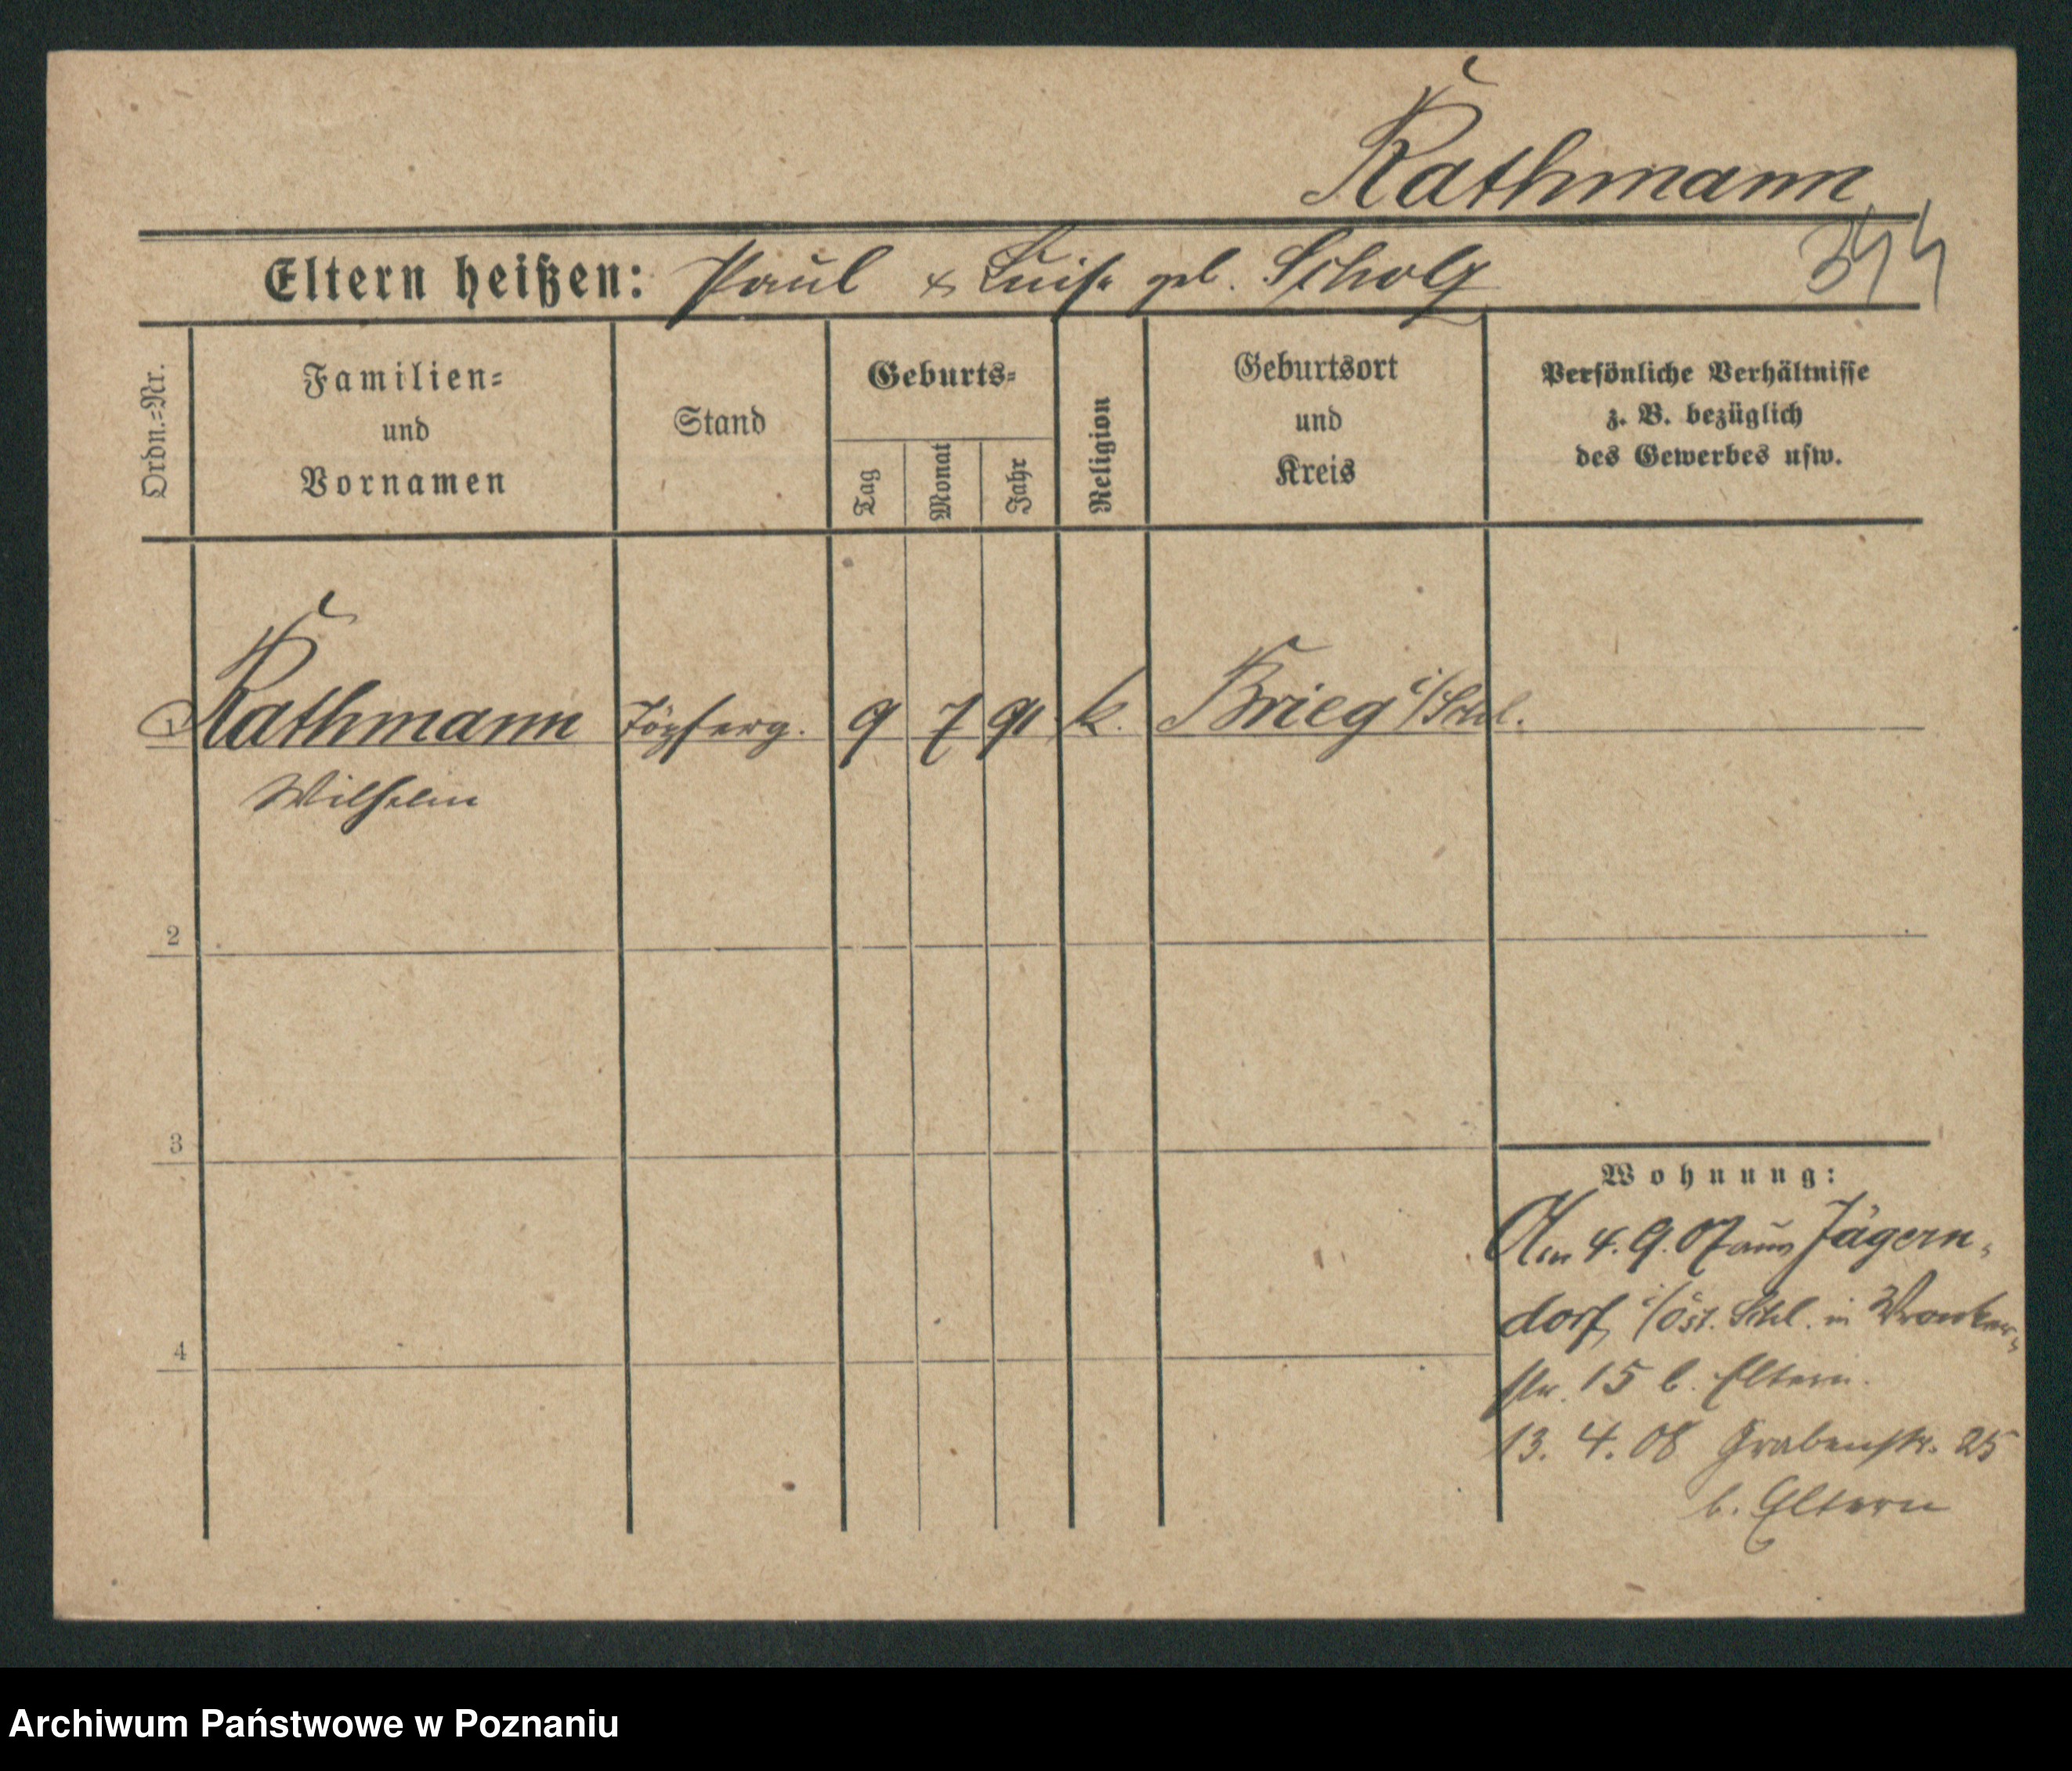 Rathmann
344
Eltern heißen: Paul & Luise geb. Scholz
Ordn.=Nr.
Familien=
und
Vornamen
Stand
Geburts=
Tag
Monat
Jahr
Religion
Geburtsort
und
Kreis
Persönliche Verhältnisse
z. B. bezüglich
des Gewerbes usw.
Rathmann Töpferg. 9 7 91 k. Brieg i/Schl.
Wilhelm
2
3
4
Wohnung:
Am 4.9.07 aus Jägern-
dorf i/Öst. Schl. in Wronker-
str. 15 b. Eltern.
13. 4. 08 Grabenstr. 25
b. Eltern
Archiwum Państwowe w Poznaniu